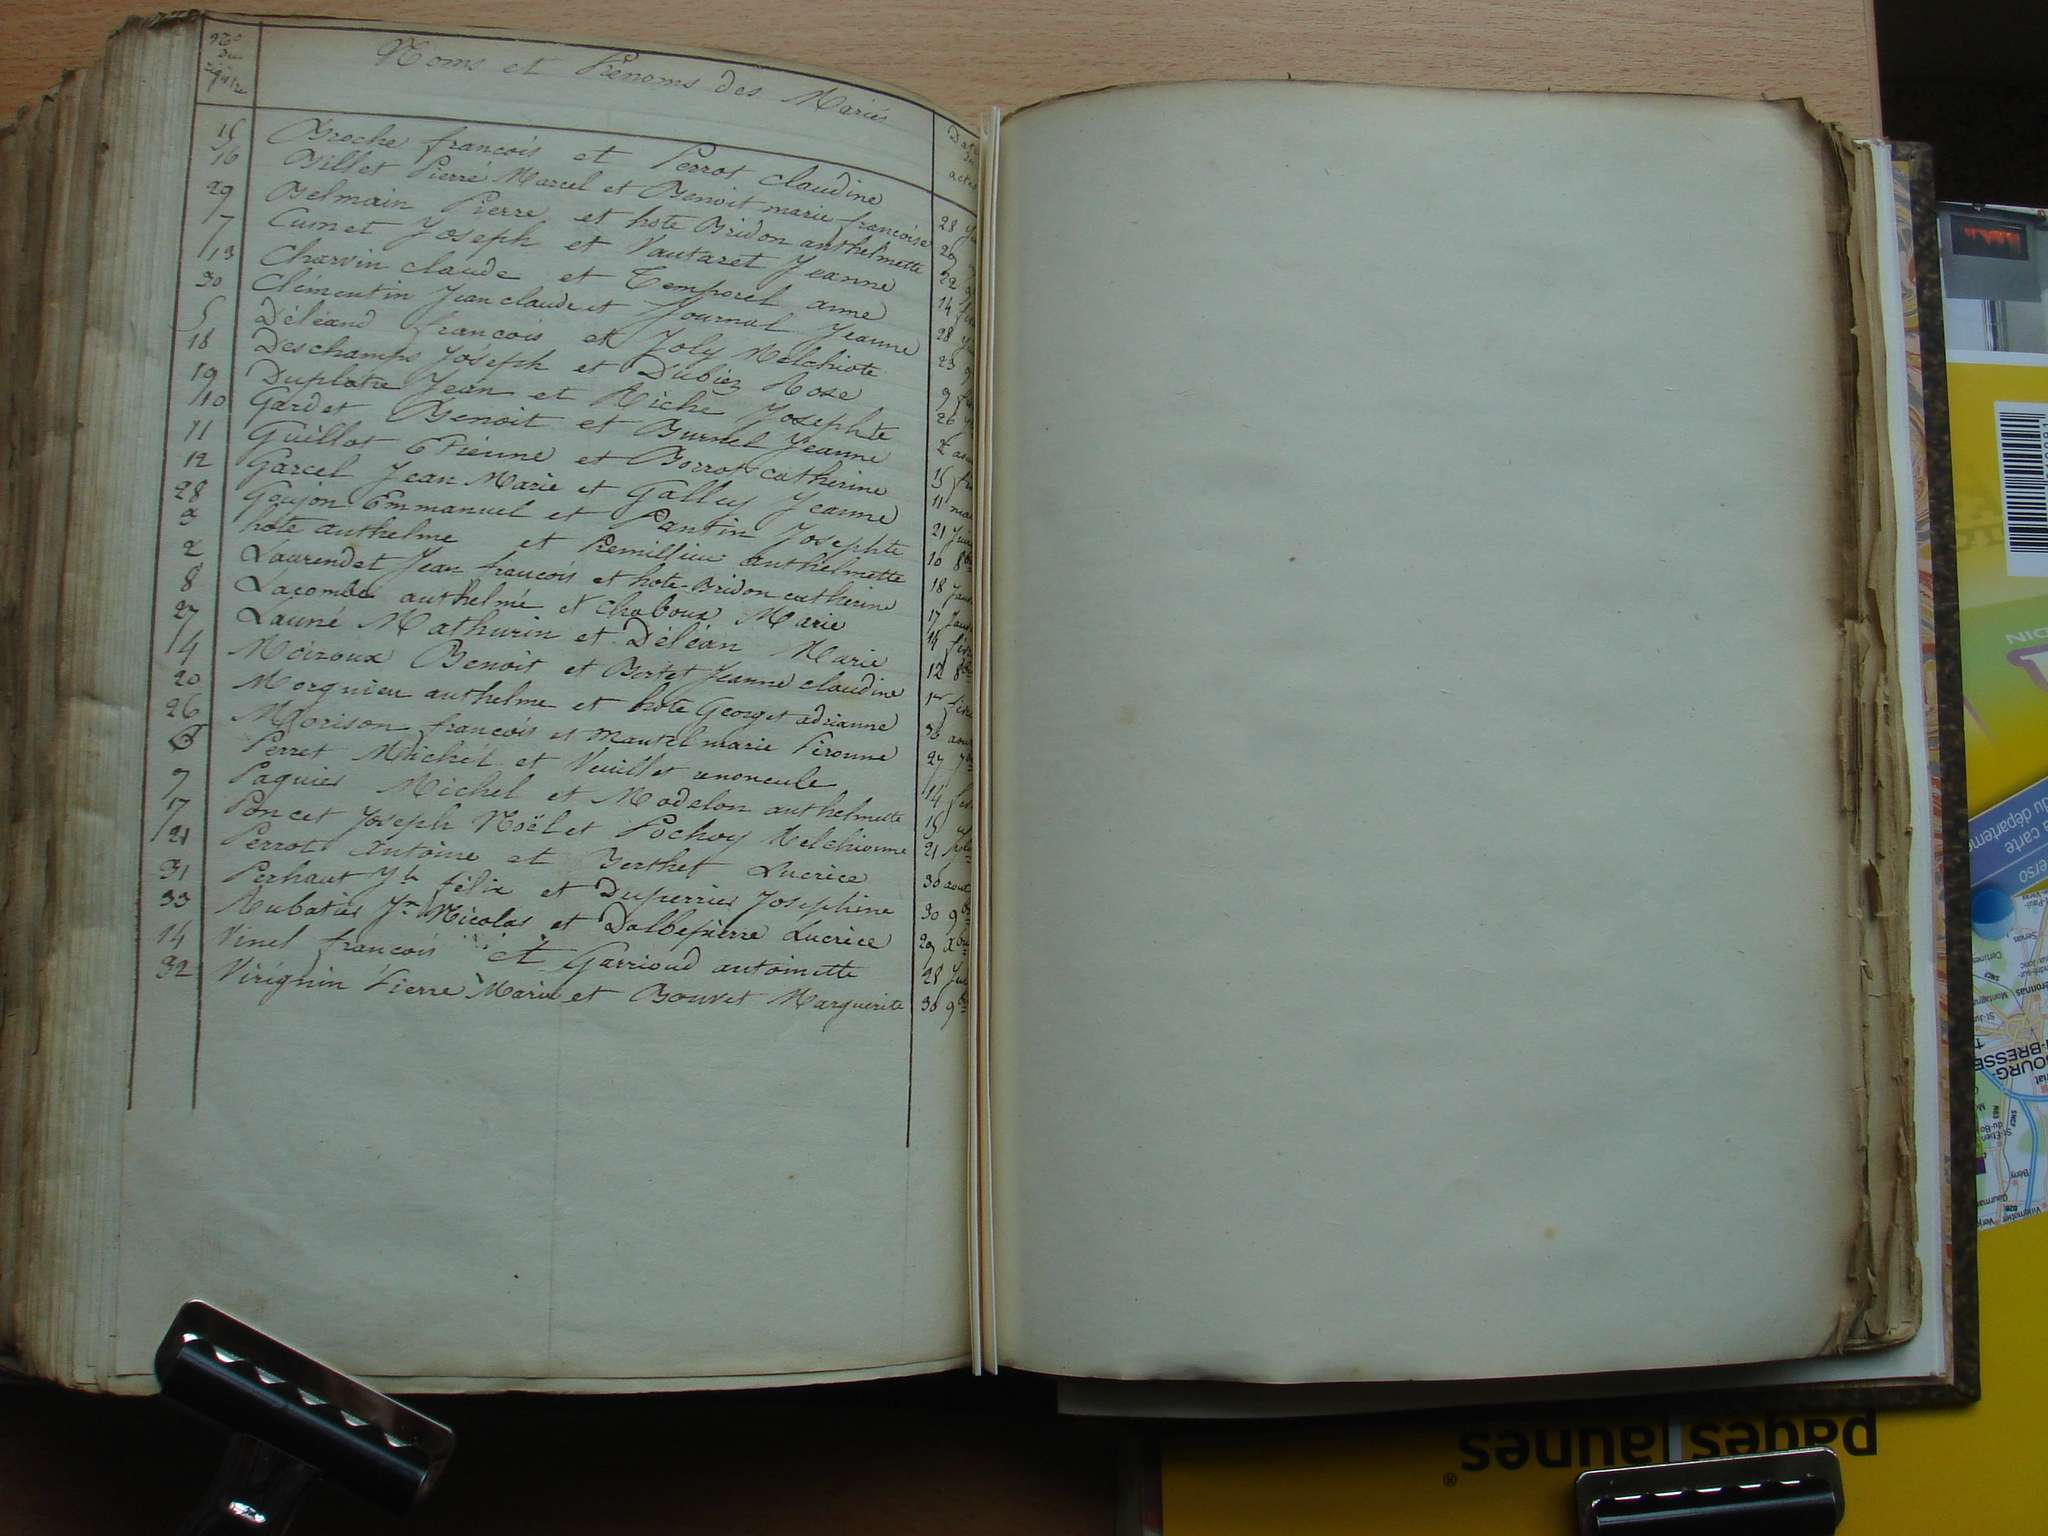 Nos du registre
Noms et Prénoms des Mariés
Date des actes
15 Broche françois et Perrot claudine 28
16 Billet Pierre Marcel et Benoit marie françoise 29
29 Belmain Pierre et hote Bridon anthelmette 22
7 Cumet Joseph et Vautaret Jeanne 14
13 Charvin claude et Temporel anne 28
30 Clémentin Jean claude et Journal Jeanne 23
5 Déléand françois et Joly Melchiote 9
18 Deschamps Joseph et Dubiez Rose 26
19 Duplatre Jean et Riche Josephte 2
10 Gardet Benoit et Burnel Jeanne 15
11 Guillot Etienne et Borrot catherine 11
12 Garcel Jean Marie et Galluy Jeanne 21
28 Goujon Emmanuel et Pantin Josephte 10 8bre
3 hote anthelme et Premillieu anthelmette 18
2 Laurendet Jean françois et hote-Bridon catherine 17
8 Lacombe anthelme et Chaboux Marie 14
27 Launé Mathurin et Déléan Marie 12 8bre
4 Moiroux Benoit et Bertet Jeanne claudine 1er
20 Morgnieu anthelme et hote Georget adrianne 30 aout
26 Morison françois et Mantel marie Pironne 27 7bre
6 Perret Michel et Vuillet renoncule 14
9 Paquier Michel et Modelon anthelmette 15
17 Poncet Joseph Noël et Pochoy Melchionne 21
21 Perrot Antoine et Berthet Lucrèce 30 aout
31 Perhaut Jh félix et Duperrier Josephine 30 9bre
33 Rubatier Jn Nicolas et Dalbepierre Lucrèce 29 Xbre
14 Vinel françois et Garrioud antoinette 28
32 Virignin Pierre Marie et Bouvet Marguerite 30 9bre
pages jaunes